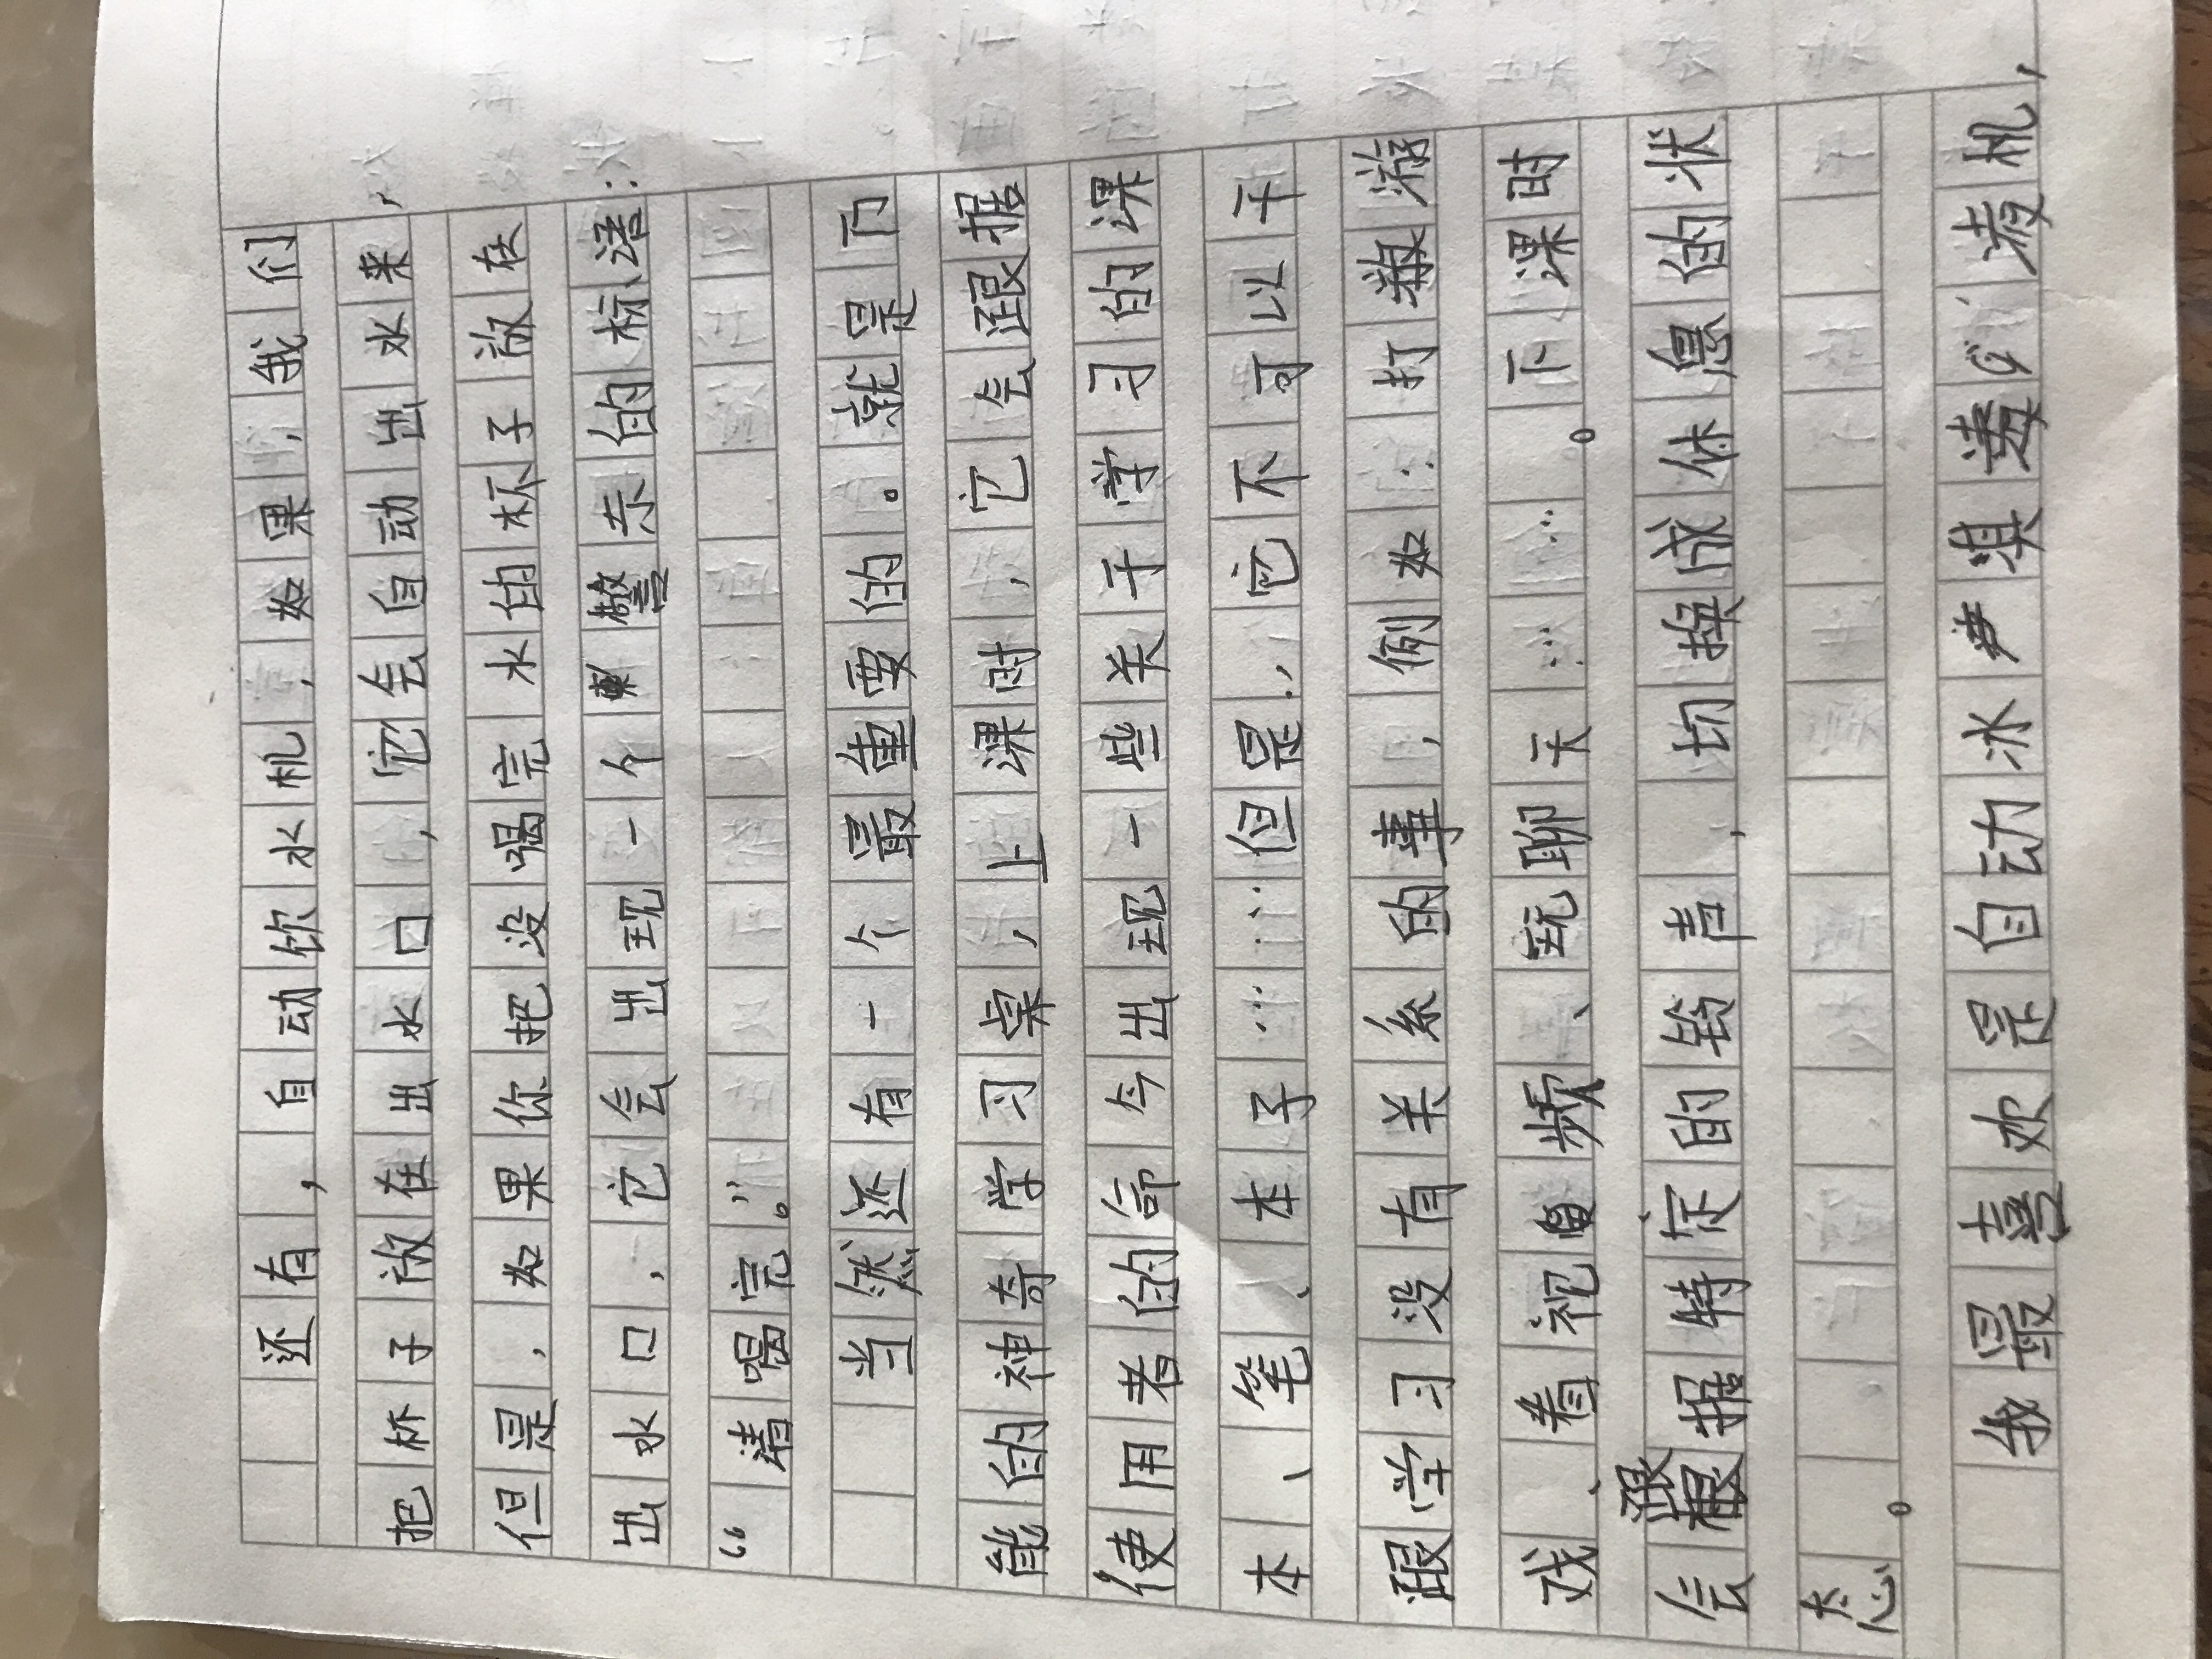 还有，自动饮水机，如果，我们
把杯子放在出水口，它会自动出水来，
但是，如果你把没喝完水的杯子放在
出水口，它会出现一个警示的标语：
“请喝完。”
当然还有一个最重要的。就是万
能的神奇学习桌，上课时，它会跟据
使用者的命令出现一些关于学习的课
本、笔、本子……但是，它不可以干
跟学习没有关系的事，例如：打游
戏、看视频、玩聊天……。下课时
会跟据特定的铃声，切换成休息的状
态。
我最喜欢是自动冰淇凌机，